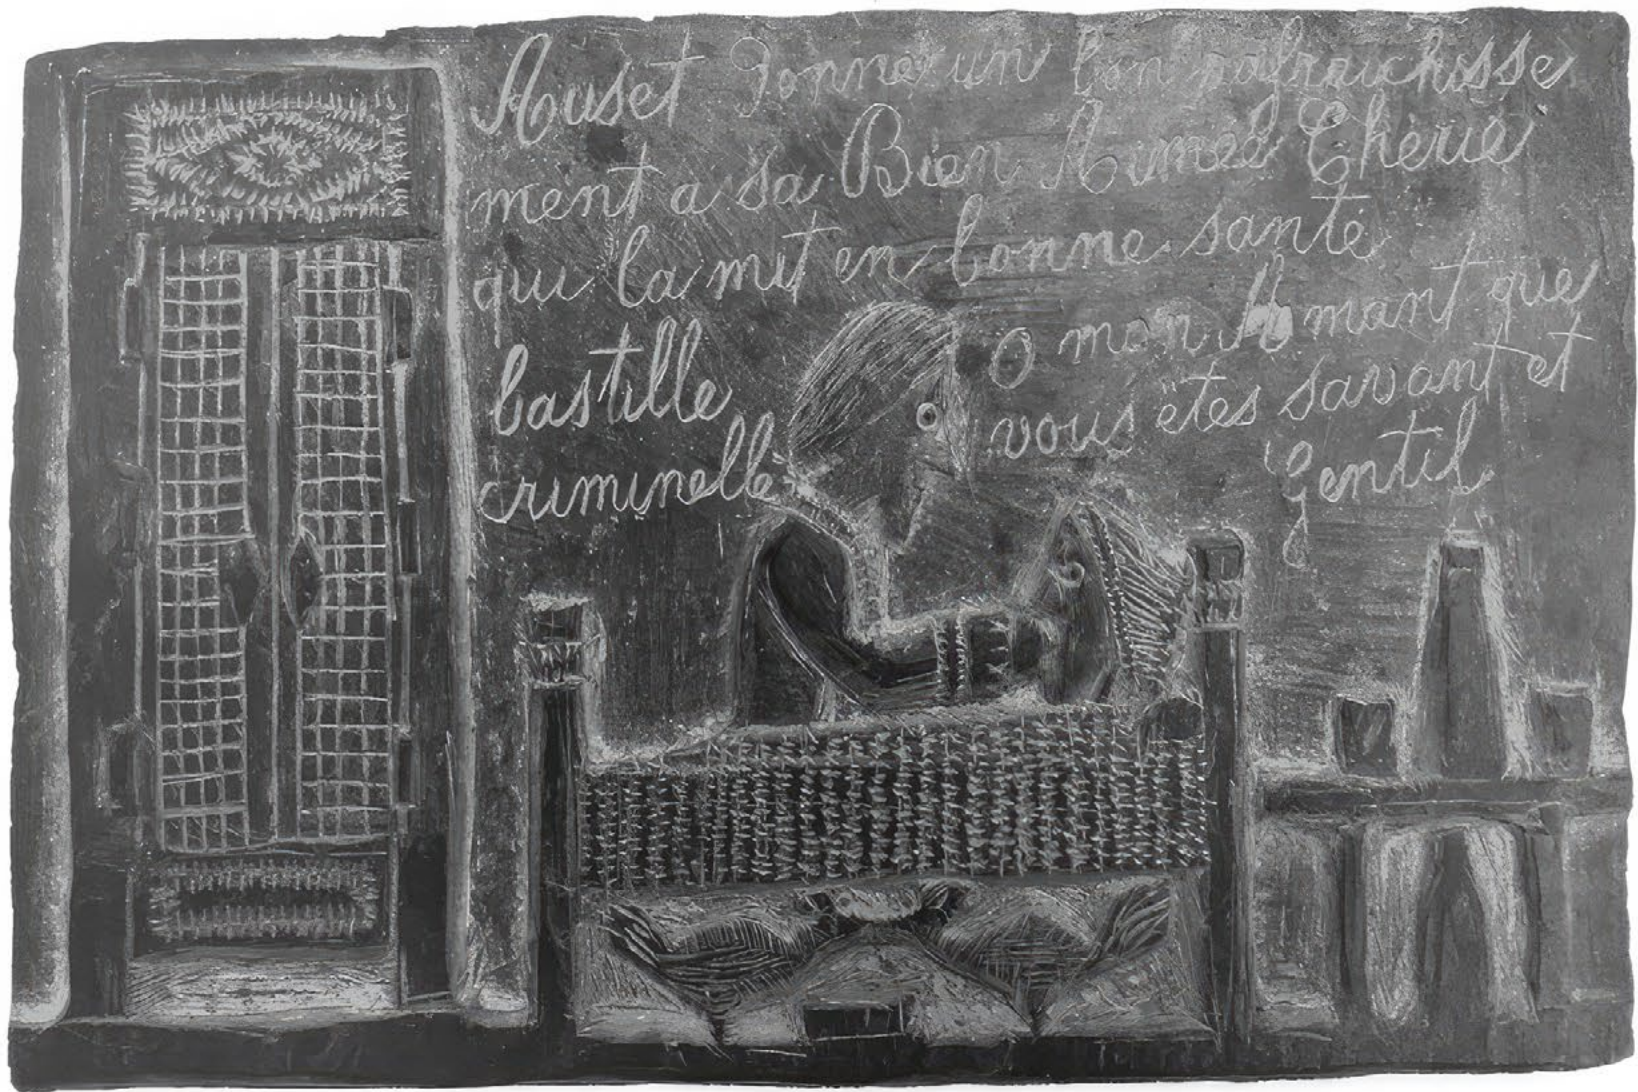 Auset Donner un bon rafraichisse
ment a sa Bien Aimeé Cherie
qui la mit en bonne santé
bastille
criminelle
O mon Amant que
vous etes savant et
Gentil